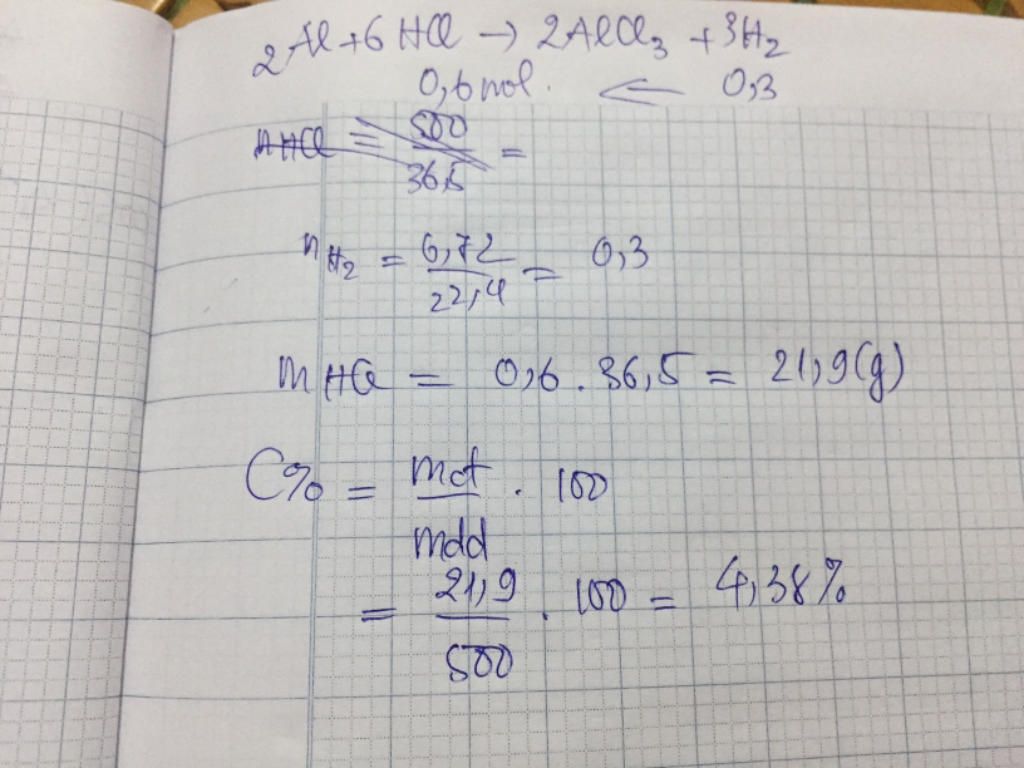 2Al + 6HCl → 2AlCl₃ + 3H₂
0,6 mol. ← 0,3
nHCl = 500/36,5 =
nH₂ = 6,72/22,4 = 0,3
mHCl = 0,6 . 36,5 = 21,9(g)
C% = mct/mdd . 100
= 21,9/500 . 100 = 4,38%